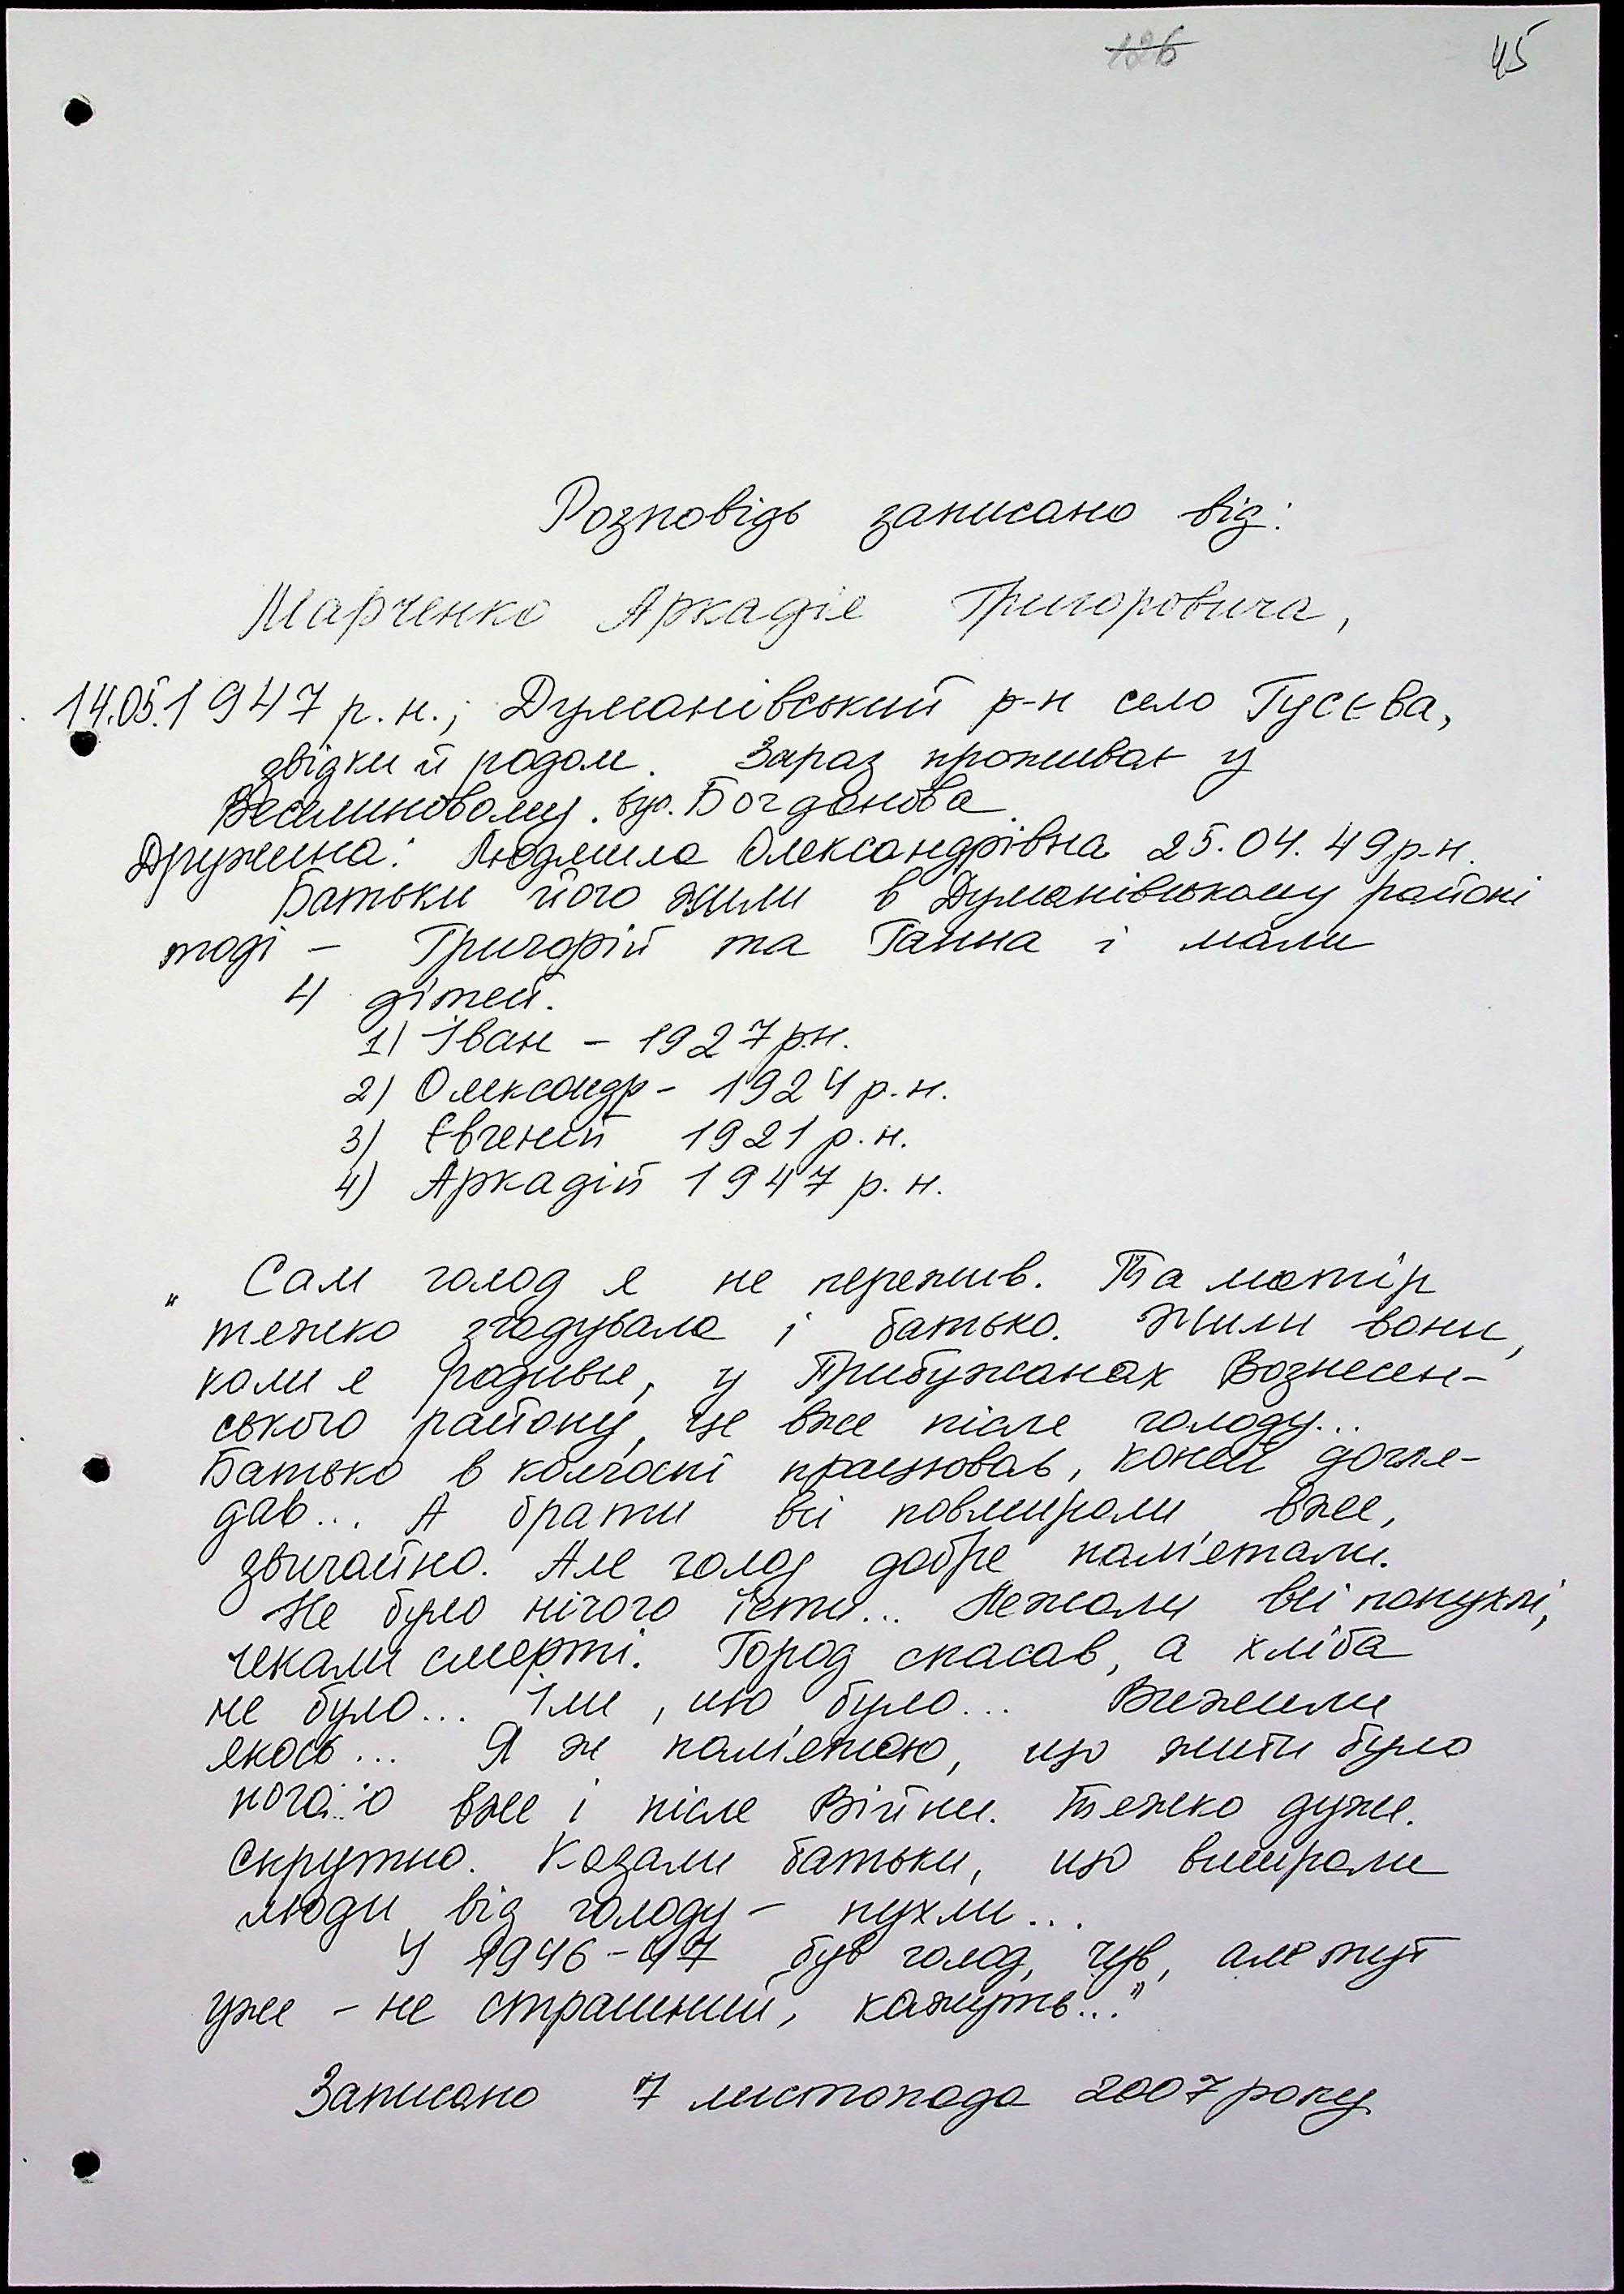 126 45
Розповідь записано від:
Марченко Аркадія Григоровича,
14.05.1947 р.н.; Думанівський р-н село Гусєва,
звідки й родом. Зараз проживає у
Веселиновому. вул. Богданова.
Дружина: Людмила Олександрівна 25.04.49 р-н.
Батьки його жили в Думанівському районі
тоді – Григорій та Ганна і мали
4 дітей.
1) Іван – 1927 р.н.
2) Олександр – 1924 р.н.
3) Євгеній 1921 р.н.
4) Аркадій 1947 р.н.
„Сам голод я не пережив. Та матір
тяжко згадувала і батько. Жили вони,
коли я родився, у Прибужанах Вознесен-
ського району, це вже після голоду...
Батько в колгоспі працював, коней догля-
дав... А брати всі повмирали вже,
звичайно. Але голод добре пам'ятали.
Не було нічого їсти... Лежали всі попухлі,
чекали смерті. Город спасав, а хліба
не було... Їли, що було... Вижили
якось... Я ж пам'ятаю, що жити було
погано вже і після Війни. Тяжко дуже.
Скрутно. Казали батьки, що вмирали
люди від голоду – пухли...
У 1946-47 був голод, чув, але тут
уже – не страшний, кажуть..."
Записано 7 листопада 2007 року